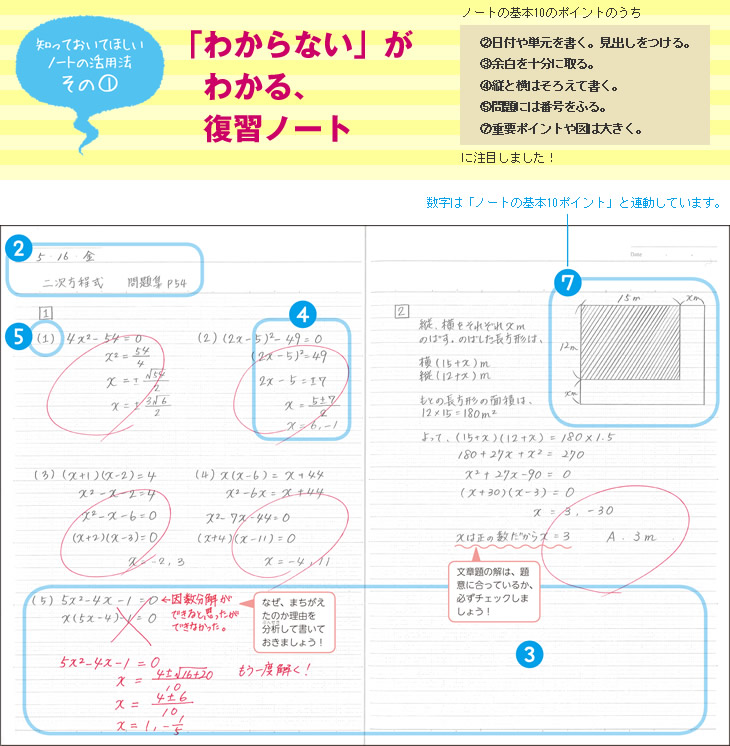 知っておいてほしい
ノートの活用法
その①
「わからない」が
わかる、
復習ノート
ノートの基本10のポイントのうち
②日付や単元を書く。見出しをつける。
③余白を十分に取る。
④縦と横はそろえて書く。
⑤問題には番号をふる。
⑦重要ポイントや図は大きく。
に注目しました！
数字は「ノートの基本10ポイント」と連動しています。
2
5・16・金
二次方程式 問題集 P54
1
5
4
(1) 4x²-54=0
x²=54/4
x=±√54/2
x=±3√6/2
(2) (2x-5)²-49=0
(2x-5)²=49
2x-5=±7
x=5±7/2
x=6,-1
(3) (x+1)(x-2)=4
x²-x-2=4
x²-x-6=0
(x+2)(x-3)=0
x=-2,3
(4) x(x-6)=x+44
x²-6x=x+44
x²-7x-44=0
(x+4)(x-11)=0
x=-4,11
(5) 5x²-4x-1=0
x(5x-4)-1=0
←因数分解が
できると思ったが
できなかった。
なぜ、まちがえ
たのか理由を
分析して書いて
おきましょう！
5x²-4x-1=0
x=4±√16+20/10
x=4±6/10
x=1,-1/5
もう一度解く！
Date
7
2
縦、横をそれぞれxm
のばす。のばした長方形は、
横(15+x)m
縦(12+x)m
もとの長方形の面積は、
12×15=180m²
15m
xm
12m
xm
よって、(15+x)(12+x)=180×1.5
180+27x+x²=270
x²+27x-90=0
(x+30)(x-3)=0
x=3,-30
xは正の数だからx=3
A. 3m
文章題の解は、題
意に合っているか、
必ずチェックしま
しょう！
3